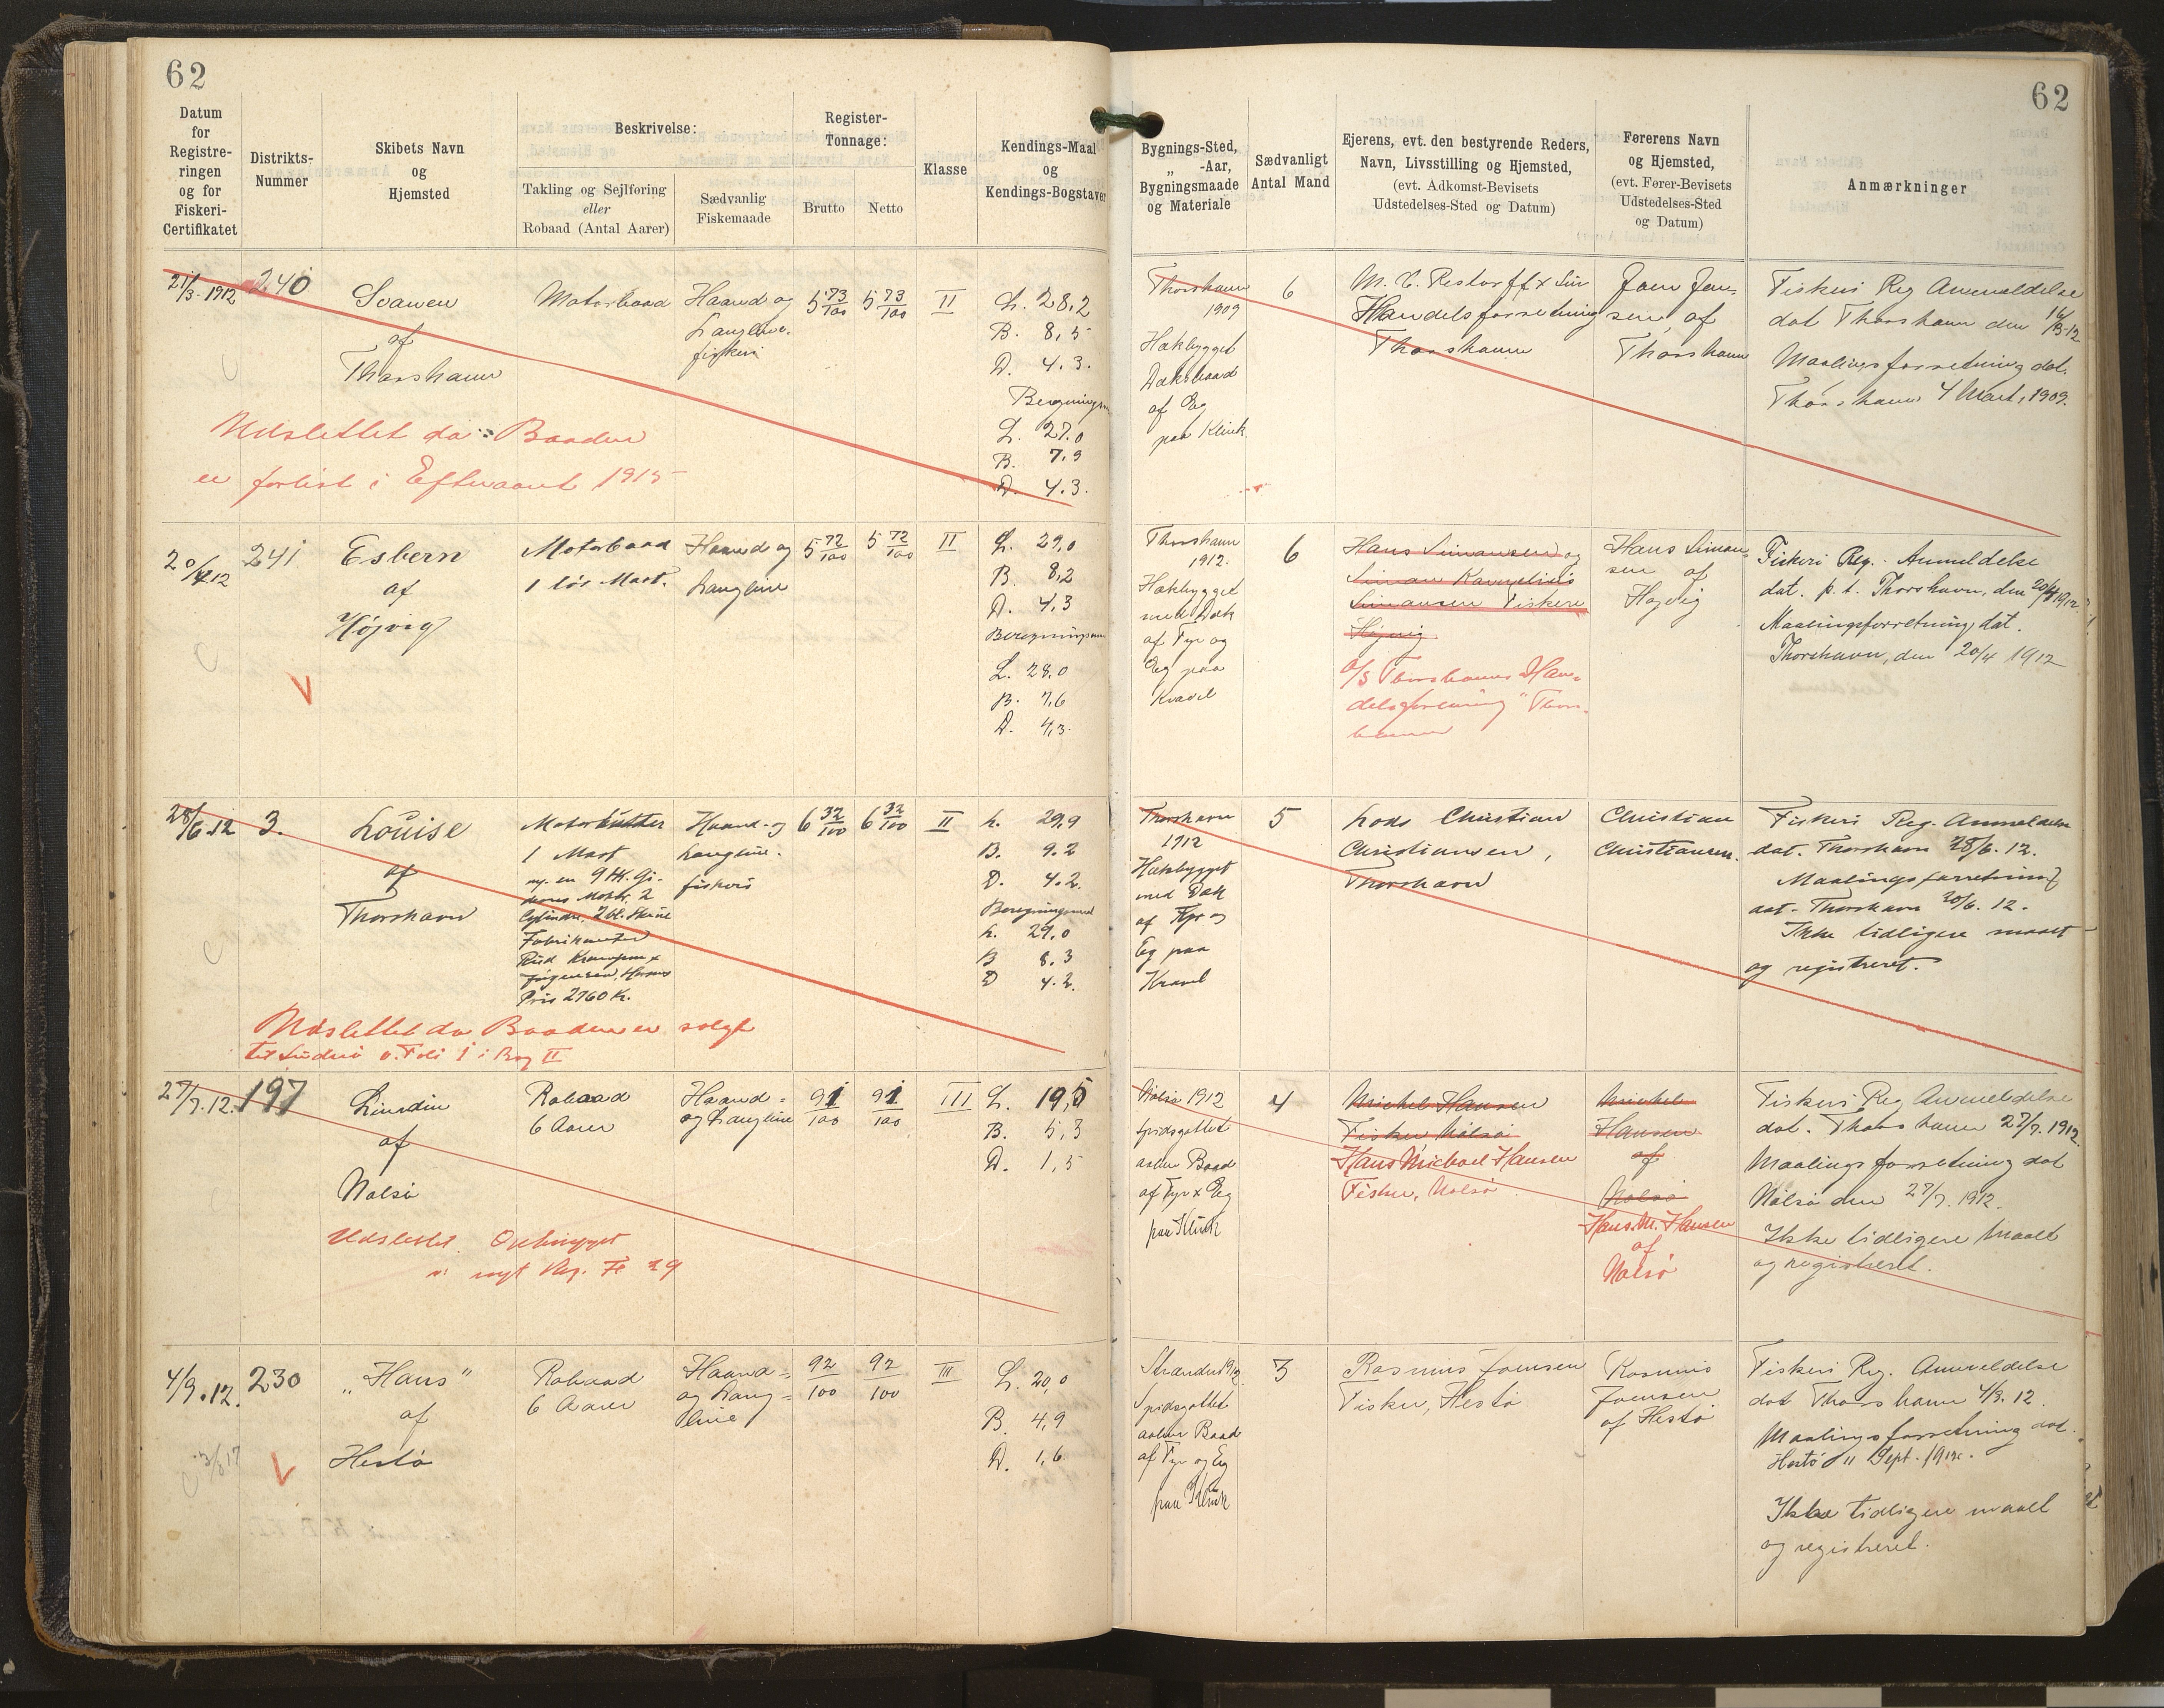 62
62
Datum
for
Registre-
ringen
og for
Fiskeri-
Certifikatet
Distrikts-
Nummer
Skibets Navn
og
Hjemsted
Beskrivelse:
Takling og Sejlføring
eller
Robaad (Antal Aarer)
Sædvanlig
Fiskemaade
Register-
Tonnage:
Brutto
Netto
Klasse
Kendings-Maal
og
Kendings-Bogstaver
Bygnings-Sted,
„ -Aar,
Bygningsmaade
og Materiale
Sædvanligt
Antal Mand
Ejerens, evt. den bestyrende Reders,
Navn, Livsstilling og Hjemsted,
(evt. Adkomst-Bevisets
Udstedelses-Sted og Datum)
Førerens Navn
og Hjemsted,
(evt. Fører-Bevisets
Udstedelses-Sted
og Datum)
Anmærkninger
21/3-1912
240
Svanen
af
Thorshavn
Motorbaad
Haand og
Langline.
fiskeri
5 73/100
5 73/100
II
L. 28,2
B. 8,5
D. 4.3.
L. 27.0
B. 7,9
D. 4.3.
Thorshavn
1909
Hækbygget
Dæksbaad
af Eg
paa Klink
6
M. C. Restorff & Søn
Handelsforretning
Thorshavn
Joen Joen-
sen, af
Thorshavn
Fiskeri Reg Anmeldelse
dat Thorshavn den 16/3-12
Maalingsforretning dat.
Thorshavn 4 Mart, 1909.
Udslettet da Baaden
er forlist i Efteraaret 1915
20/4.12
241
Esbern
af
Højvig
Motorbaad
1 løs Mast.
Haand og
Langline
5 72/100
5 72/100
II
L. 29,0
B. 8,2
D. 4,3
L. 28.0
B. 7,6
D. 4,3.
Thorshavn
1912.
Hækbygget
med Dæk
af Fyr og
Eg paa
Kravel
6
Hans Simonsen og
Simonsen Fiskere
Højvig
A/S Thorshavns Han-
delsforening Thors-
havn
Hans Simon
sen af
Højvig
Fiskeri Reg. Anmeldelse
dat. p. t. Thorshavn, den 20/4 1912.
Maalingsforretning dat.
Thorshavn, den 20/4 1912
28/6.12
3.
Louise
af
Thorshavn
Motorkutter
1 Mast
Cylindre, 2 bl. Skrue
Fabrikanten
Pris 2760 Kr.
Haand- og
Langline.
fiskeri
6 32/100
6 32/100
II
L. 29,9
B. 9.2
D. 4.2.
Beregningsmaal
L. 29,0
B 8.3
D 4.2.
Thorshavn
1912
Hækbygget
med Dæk
af Fyr og
Eg paa
Kravel
5
Lods Christian
Christiansen,
Thorshavn
Christian
Christiansen.
Fiskeri Reg. Anmeldelse
dat. Thorshavn 28/6. 12.
Maalingsforretning
dat. Thorshavn 28/6. 12.
Ikke tidligere maalt
og registreret.
Udslettet da Baaden er solgt
til Suderø v. Foli 1 i Bog II
27/7.12.
197
af
Nolsø
Robaad
6 Aarer
Haand-
og Langline
91/100
91/100
III
L. 19,5
B. 5,3
D. 1,5
Nolsø 1912
Spidsgattet
aaben Baad
af Fyr & Eg
paa Klink
4
Michel Hansen
Fisker, Nolsø
Hans Michael Hansen
Fisker, Nolsø
Michel
Hansen
af
Nolsø
Hans M. Hansen
af
Nolsø
Fiskeri Reg Anmeldelse
dat. Thorshavn 27/7. 1912.
Maalingsforretning dat
Nolsø den 27/7. 1912.
Ikke tidligere Maalt
og registreret.
Udslettet. Ophugget
v. nyt Reg. Fo 29
4/9.12.
230
„Hans”
af
Hestø
Robaad
6 Aarer
Haand-
og Lang-
line
92/100
92/100
III
L. 20,0
B. 4,9
D. 1,6
3/8 17
Spidsgattet
aaben Baad
af Fyr og Eg
paa Klink
3
Rasmus Joensen
Fisker, Hestø
Rasmus
Joensen
af Hestø
Fiskeri Reg. Anmeldelse
dat Thorshavn 4/9. 12
Maalingsforretning dat.
Ikke tidligere maalt
og registreret.